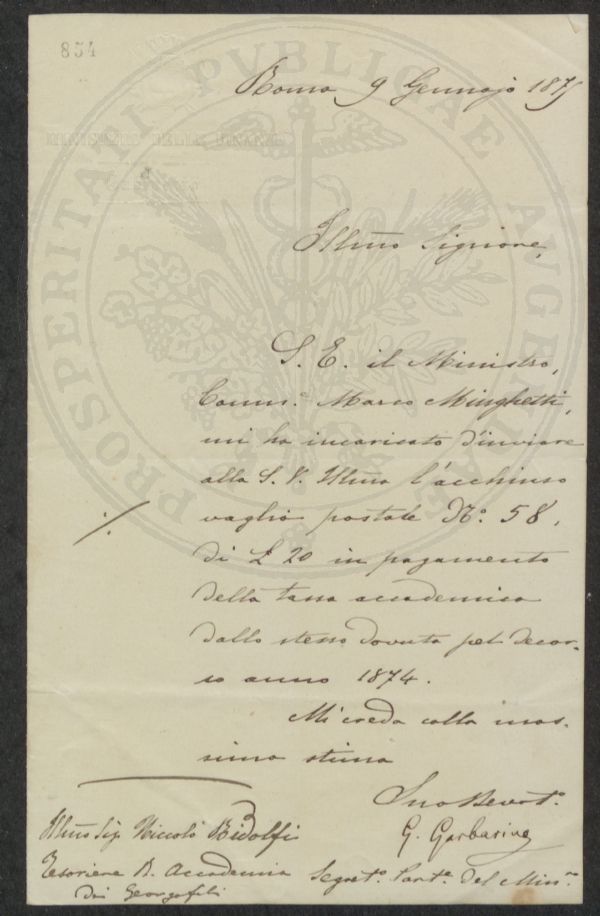 854
Roma 9 Gennajo 1875
MINISTERO DELLE FINANZE
Illmo Signore,
S. E. il Ministro,
Comm.e Marco Minghetti,
mi ha incaricato d'inviare
alla S. V. Illma l'acchiuso
vaglia postale No. 58,
di £ 20 in pagamento
della tassa accademica
dallo stesso dovuta pel decor-
so anno 1874.
Mi creda colla mas-
sima stima
Suo Devoto.
G. Garbarino
Segreto. Parte. del Minro
Illmo Sig. Niccolò Ridolfi
Tesoriere R. Accademia
dei Georgofili
PROSPERITATI PVBLICAE AVGENDAE